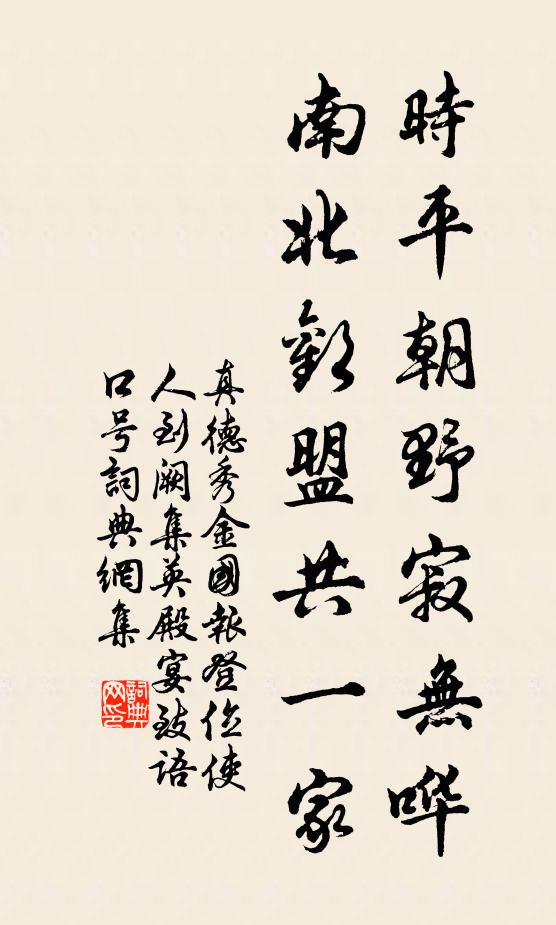 時平朝野寂無哗
南北歡盟共一家
真德秀金國報登位使
人到阙集英殿宴致語
口号詞典網集
詞典网印